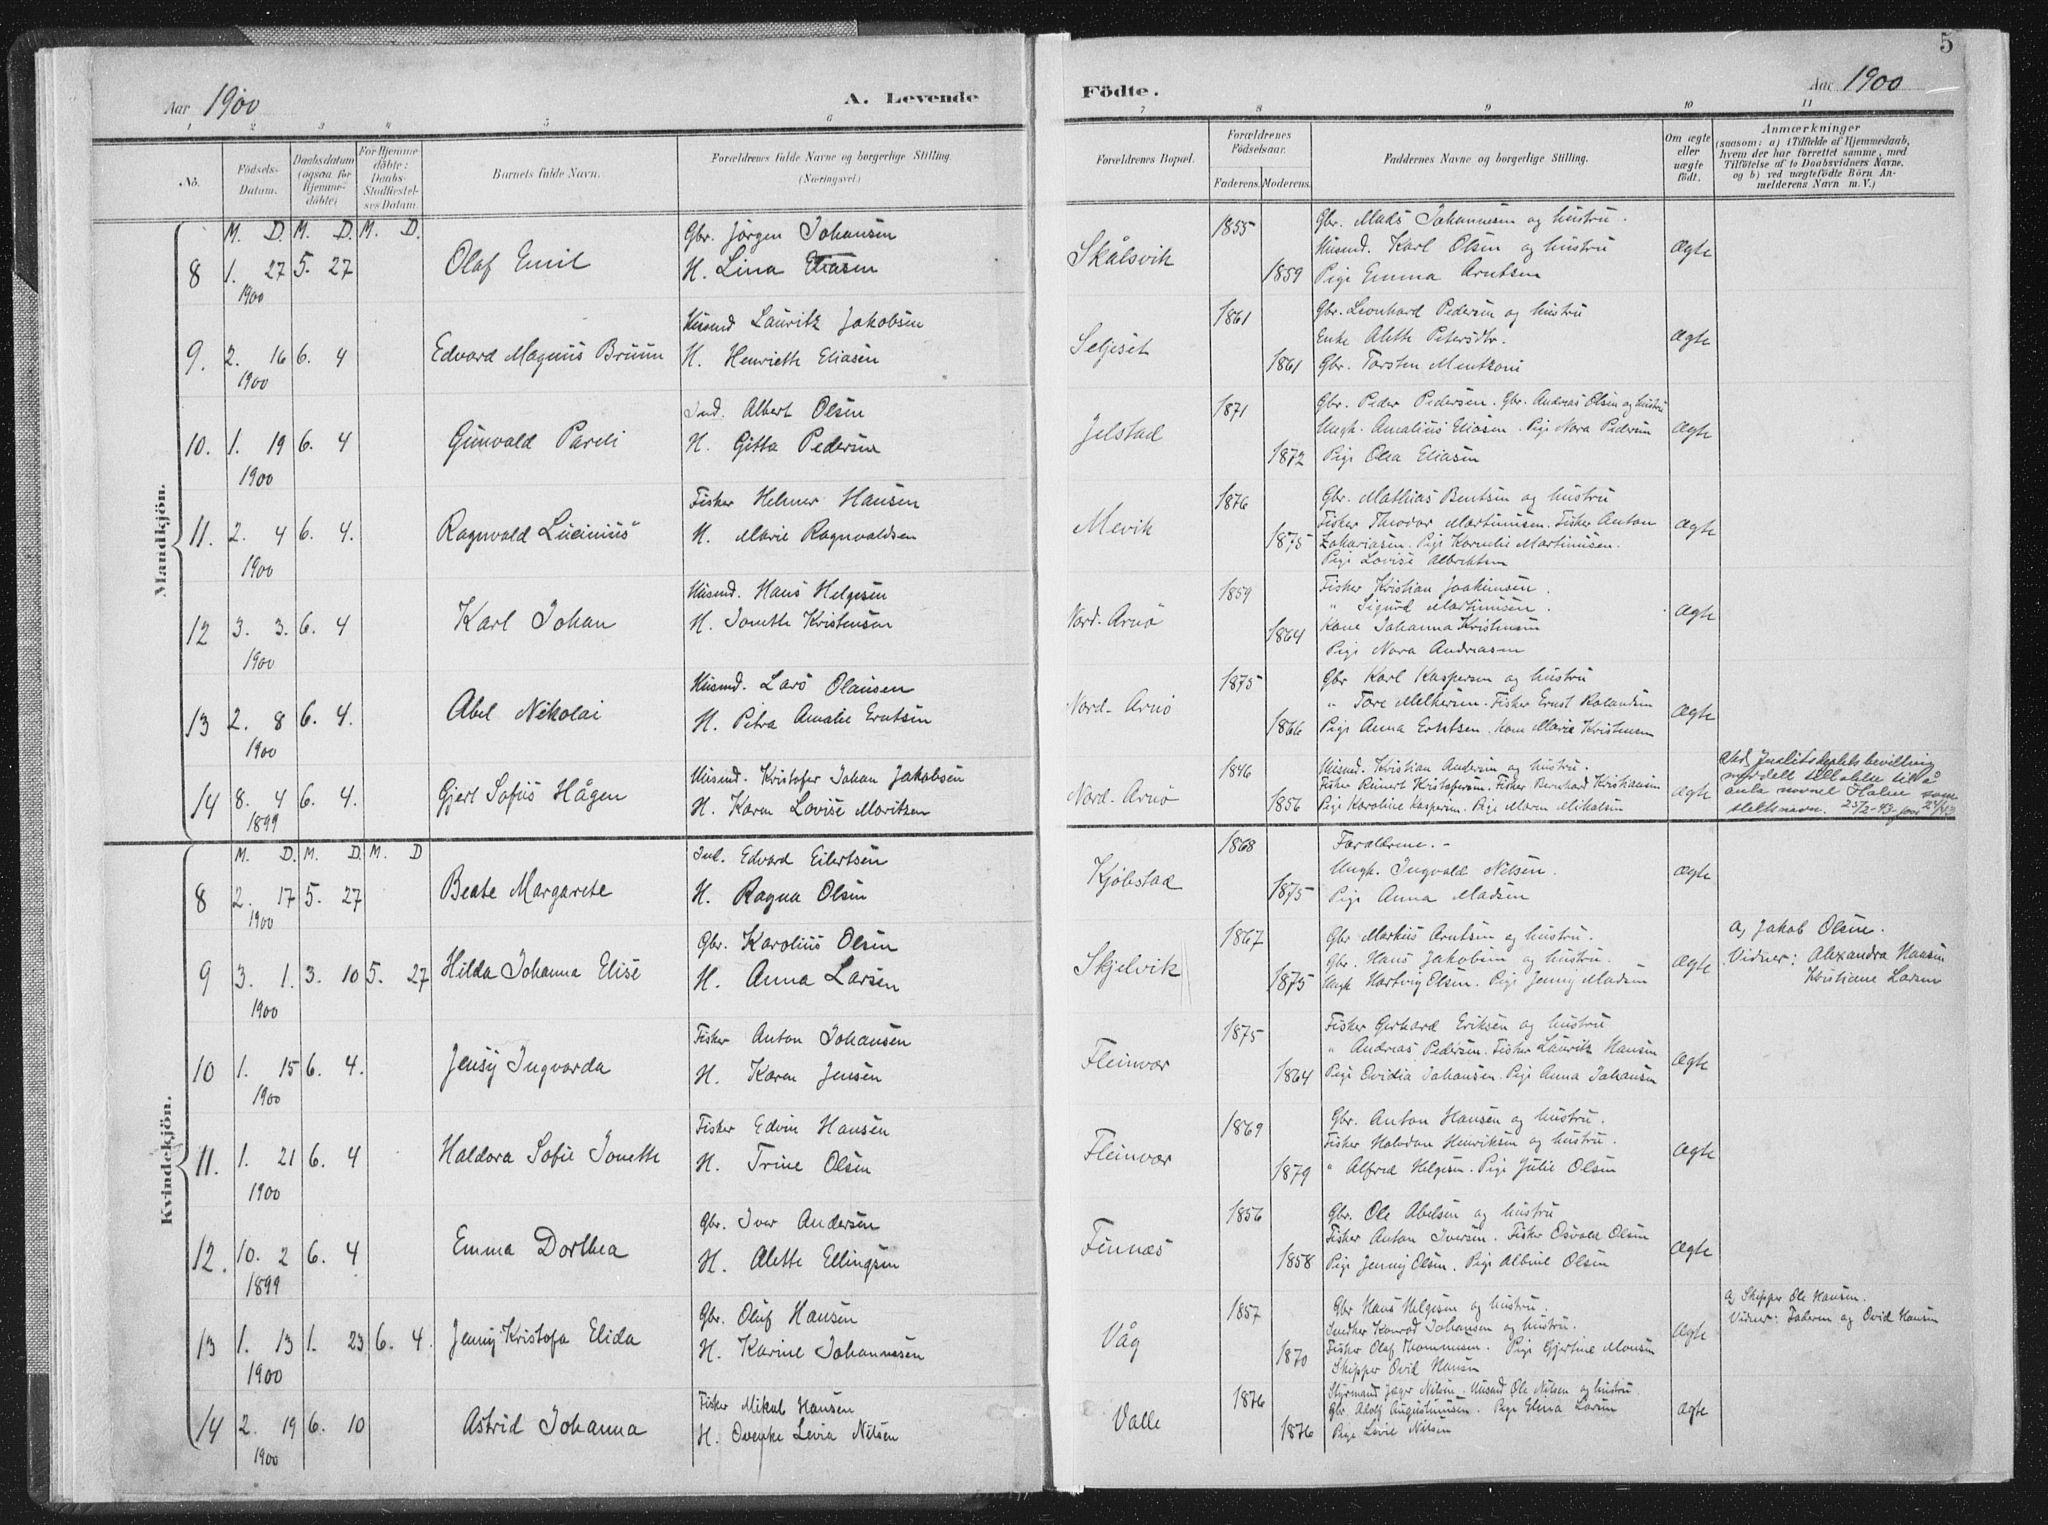 5
Aar 1900
A. Levende
Födte.
Aar 1900
1 2 3 4 5 6 7 8 9 10 11
No.
Födsels-Datum.
Daabsdatum (ogsaa for Hjemme-döbte)
For Hjemme döbte: Daabs-Stadfæstel-ses Datum.
Barnets fulde Navn.
Forældrenes fulde Navne og borgerlige Stilling.
(Næringsvei.)
Forældrenes Bopæl.
Forældrenes Födselsaar.
Faderens. Moderens.
Faddernes Navne og borgerlige Stilling.
Om ægte eller uægte födt.
Anmærkninger
(saasom: a) i Tilfælde af Hjemmedaab,
hvem der har forrettet samme, med
Tilföielse af to Daabsvidners Navne.
og b) ved uægtefödte Börn An-
melderens Navn m. V.)
Mandkjön.
M. D. M. D. M. D.
8 1. 27 1900 5. 27 Olaf Emil
Gbr. Jörgen Johansen
H. Lina Eliasen
Skålsvik 1855 1859
Gbr. Mads Johannesen og hustru.
Husmd. Karl Olsen og hustru
Pige Emma Arntsen
Ægte
9. 2. 16 1900 6. 4 Edvard Magnus Bruun
Husmd Lauritz Jakobsen
H. Henriette Eliasen
Seljeset 1861 1861
Gbr. Leonhard Pedersen og hustru
Enke Aleth Petersdtr.
Gbr. Torsten Mentzoni
Ægte
10. 1. 19 1900 6. 4 Gunvald Pareli
Ind. Albert Olsen
H. Gitta Pedersen
Jelstad 1871 1872
Gbr. Peder Pedersen. Gbr. Andreas Olsen og hustru
Ungk. Amalius Eliasen. Pige Nora Pedersen
Pige Olea Eliasen
Ægte
11. 2. 4 1900 6. 4. Ragnvald Lucinius
Fisker Helmer Hansen
H. Marie Ragnvaldsen
Mevik 1876 1875
Gbr. Mathias Bentsen og hustru
Fisker Theodor Martinusen. Fisker Anton
Zakariasen. Pige Kornelie Martinusen.
Pige Lovise Albrektsen
Ægte
12 3. 3. 1900 6. 4 Karl Johan
Husmd. Hans Helgesen
H. Jonette Kristensen
Nord-Arnö 1859 1864
Fisker Kristian Joakimsen.
" Sigurd Martinusen.
Kone Johanna Kristensen
Pige Nora Andreasen
Ægte
13 2. 8 1900 6. 4. Abel Nikolai
Husmd. Lars Olausen
H. Petra Amalie Erntsen
Nord-Arnö 1875 1866
Gbr Karl Kaspersen og hustru
" Tore Melkersen. Fisker Ernst Rolandsen
Pige Anna Erntsen. Kone Marie Kristensen
Ægte
14 8. 4 1899 6. 4. Gjert Sofus Hågen
Husmd. Kristofer Johan Jakobsen
H. Karen Lovise Moritsen
Nord-Arnö 1846 1856
Husmd. Kristian Andersen og hustru.
Fisker Reinert Kristofersen. Fisker Bernhard Kristiansen
Pige Karoline Kaspersen. Pige Maren Mikalsen
Ægte
Ved Justitsdeptets bevilling
meddelt tillatelse til å
anta navnet Holm som
slektsnavn. 25/2-43
Kvindekjön.
M. D. M. D. M. D
8 2. 17 1900 5. 27 Beate Margarete
Ind. Edvard Eilertsen
H. Ragna Olsen
Kjöbstad 1868 1875
Forældrene. -
Ungk. Ingvald Nilsen.
Pige Anna Madsen
Ægte
9 3. 1. 1900 3. 10 5. 27 Hilda Johanna Elise
Gbr. Karolius Olsen
H. Anna Larsen
Skjelvik 1867 1875
Gbr Markus Arntsen og hustru.
Gbr. Hans Jakobsen og hustru.
Ungk Hartvig Olsen. Pige Jenny Madsen
Ægte
a, Jakob Olsen.
Vidner: Alexandra Hansen
Kristiane Larsen
10 1. 15 1900 6. 4. Jensy Ingvarda
Fisker Anton Johansen
H. Karen Jensen
Fleinvær 1875 1864
Fisker Gerhard Eriksen og hustru
" Andreas Pedersen. Fisker Lauritz Hansen
Pige Ovidia Johansen. Pige Anna Johansen
Ægte
11. 1. 21 1900 6. 4 Haldora Sofie Jonette
Fisker Edvin Hansen
H. Trine Olsen
Fleinvær 1869 1879
Gbr. Anton Hansen og hustru.
Fisker Halvdan Henriksen og hustru.
" Alfred Helgesen. Pige Julie Olsen
Ægte
12. 10. 2 1899 6. 4 Emma Dorthea
Gbr. Iver Andersen
H. Alette Ellingsen
Finnæs 1856 1858
Gbr. Ole Abelsen og hustru
Fisker Anton Iversen. Fisker Osvald Olsen
Pige Jenny Olsen. Pige Albine Olsen
Ægte
13 1. 13 1900 1. 23 6. 4. Jenny Kristofa Elida
Gbr. Oluf Hansen
H. Karine Johannesen
Våg 1857 1870
Gbr Hans Helgesen og hustru.
Inds Konrad Johansen og hustru.
Fisker Olaf Thommesen. Pige Gjertine Monsen
Skipper Ovid Hansen
Ægte
a, Skipper Ole Hansen.
Vidner: Faderen og Ovid Hansen
14 2. 19 1900 6. 10 Astrid Johanna
Fisker Mikal Hansen
H. Ovenke Levia Nilsen
Valle 1876 1876
Styrmand Jager Nilsen. Husmd Ole Nilsen og hustru.
Gbr. Adolf Augustinusen. Pige Elma Larsen
Pige Levie Nilsen
Ægte